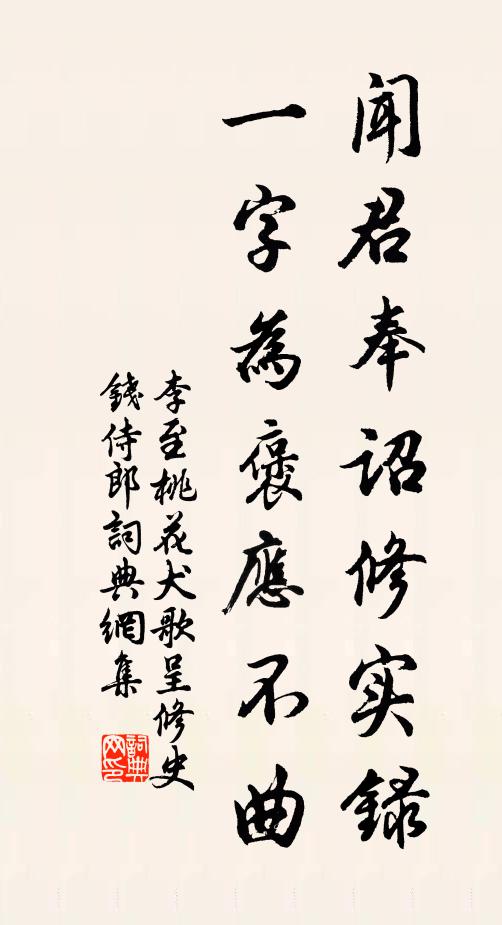 闻君奉詔修实録
一字為褒應不曲
李至桃花犬歌呈修史
錢侍郎詞典網集
詞典网印